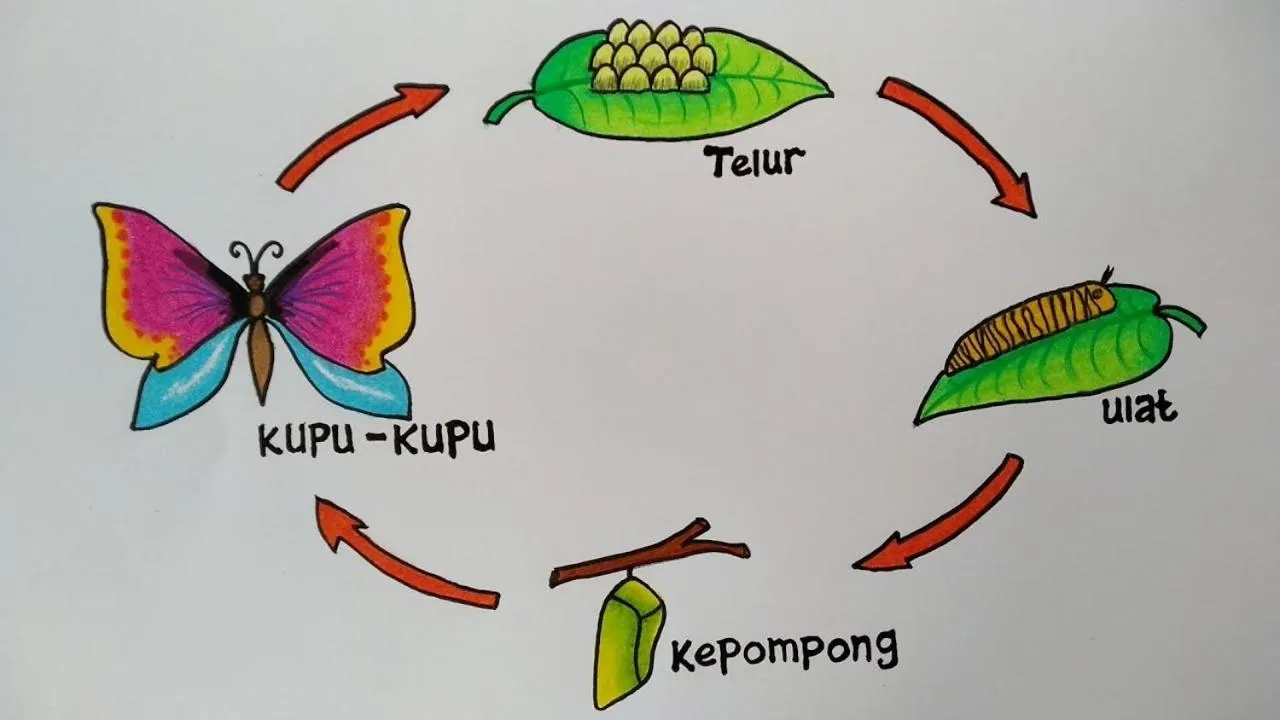 Telur
ulat
Kepompong
Kupu-Kupu